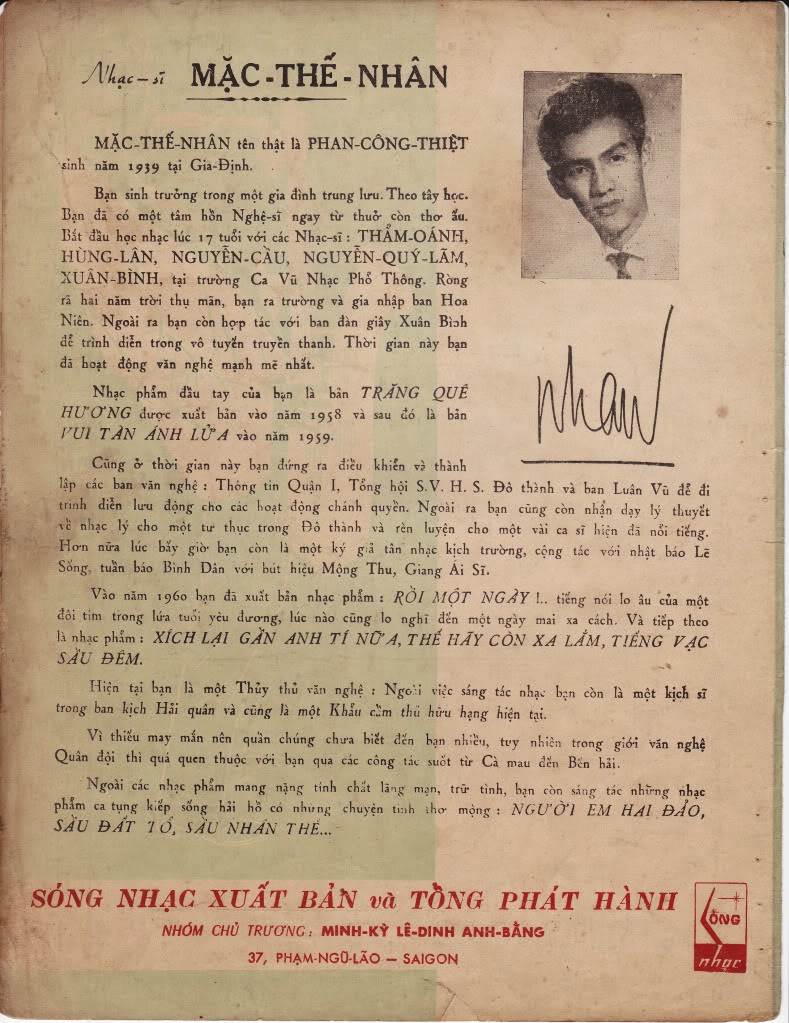 Nhạc-sĩ MẶC-THẾ-NHÂN
MẶC-THẾ-NHÂN tên thật là PHAN-CÔNG-THIỆT
sinh năm 1939 tại Gia-Định.
Bạn sinh trưởng trong một gia đình trung lưu. Theo tây học.
Bạn đã có một tâm hồn Nghệ-sĩ ngay từ thuở còn thơ ấu.
Bắt đầu học nhạc lúc 17 tuổi với các Nhạc-sĩ : THẨM-OÁNH,
HÙNG-LÂN, NGUYỄN-CẦU, NGUYỄN-QUÝ-LÃM,
XUÂN-BÌNH, tại trường Ca Vũ Nhạc Phổ Thông. Ròng
rã hai năm trời thụ mãn, bạn ra trường và gia nhập ban Hoa
Niên. Ngoài ra bạn còn hợp tác với ban đàn giây Xuân Bình
để trình diễn trong vô tuyến truyền thanh. Thời gian này bạn
đã hoạt động văn nghệ mạnh mẽ nhất.
Nhạc phẩm đầu tay của bạn là bản TRĂNG QUÊ
HƯƠNG được xuất bản vào năm 1958 và sau đó là bản
VUI TÀN ÁNH LỬA vào năm 1959.
Cũng ở thời gian này bạn đứng ra điều khiển và thành
lập các ban văn nghệ : Thông tin Quận I, Tổng hội S.V. H. S. Đô thành và ban Luân Vũ để đi
trình diễn lưu động cho các hoạt động chánh quyền. Ngoài ra bạn cũng còn nhận dạy lý thuyết
về nhạc lý cho một tư thục trong Đô thành và rèn luyện cho một vài ca sĩ hiện đã nổi tiếng.
Hơn nữa lúc bấy giờ bạn còn là một ký giả tân nhạc kịch trường, cộng tác với nhật báo Lẽ
Sống, tuần báo Bình Dân với bút hiệu Mộng Thu, Giang Ái Sĩ.
Vào năm 1960 bạn đã xuất bản nhạc phẩm : RỒI MỘT NGÀY !.. tiếng nói lo âu của một
đôi tim trong lứa tuổi yêu đương, lúc nào cũng lo nghĩ đến một ngày mai xa cách. Và tiếp theo
là nhạc phẩm : XÍCH LẠI GẦN ANH TÍ NỮA, THẾ HÃY CÒN XA LẮM, TIẾNG VẠC
SẦU ĐÊM.
Hiện tại bạn là một Thủy thủ văn nghệ : Ngoài việc sáng tác nhạc bạn còn là một kịch sĩ
trong ban kịch Hải quân và cũng là một Khẩu cầm thủ hữu hạng hiện tại.
Vì thiếu may mắn nên quần chúng chưa biết đến bạn nhiều, tuy nhiên trong giới văn nghệ
Quân đội thì quá quen thuộc với bạn qua các công tác suốt từ Cà mau đến Bến hải.
Ngoài các nhạc phẩm mang nặng tính chất lãng mạn, trữ tình, bạn còn sáng tác những nhạc
phẩm ca tụng kiếp sống hải hồ có những chuyện tình thơ mộng : NGƯỜI EM HẢI ĐẢO,
SẦU ĐẤT TỔ, SẦU NHÂN THẾ...
nhân
SÓNG NHẠC XUẤT BẢN và TỔNG PHÁT HÀNH
NHÓM CHỦ TRƯƠNG: MINH-KỲ LÊ-DINH ANH-BẰNG
37, PHẠM-NGŨ-LÃO – SAIGON
SÓNG
nhạc